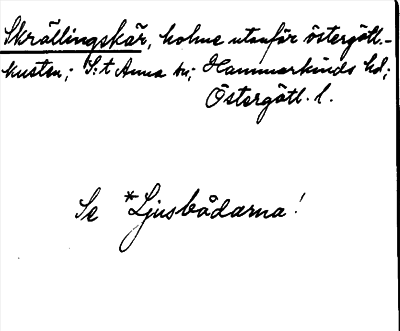 Skrällingskär, holme utanför östergötl.-
kusten; S:t Anna sn; Hammarkinds hd;
Östergötl. l.
Se *Ljusbådarna!